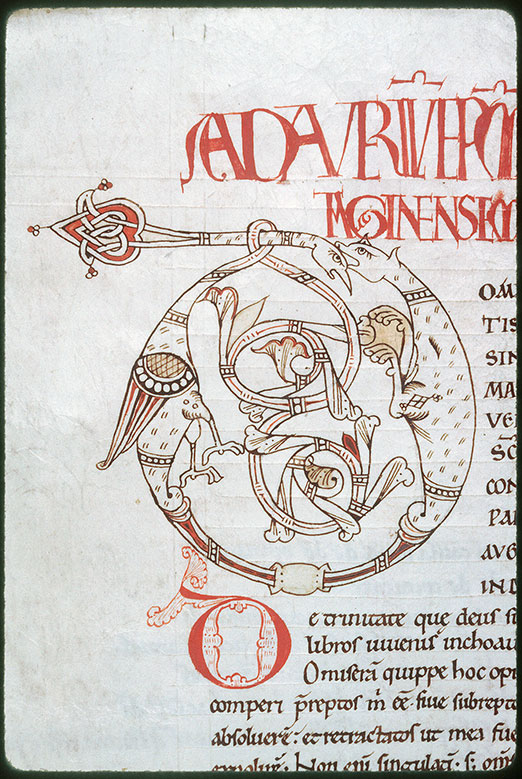 AD AVRELIV̄ EP̄M
TAGINENSEM
DOM
TIS
SIN
MA
VE
SC̄
CON
PA
AVG
IND
De trinitate que deus su
libros iuuenis inchoau
Omiserā quippe hoc op
comperi p̄reptos m̄ eē· siue subrepto
absoluerē· et retractatos ut mea fue
expolirē· Non eni singulati· s; om